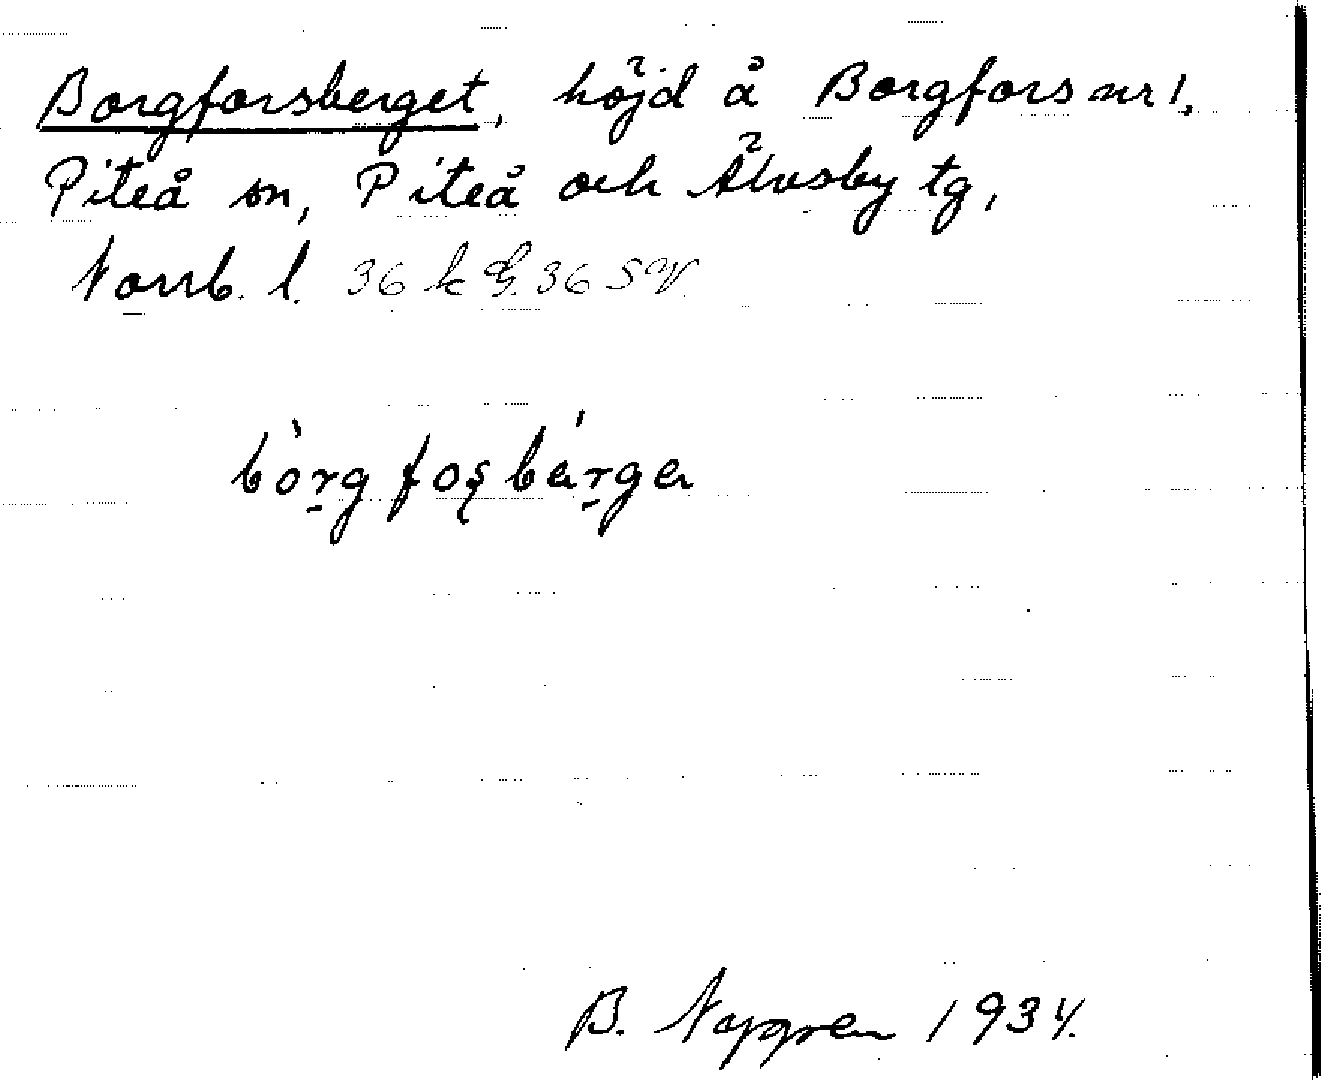 Borgforsberget, höjd å Borgfors nr 1,
Piteå sn, Piteå och Älvsby tg,
Norrb. l. 36 k 36 SV.
bòrgfoʂbárga
B. Nygren 1934.